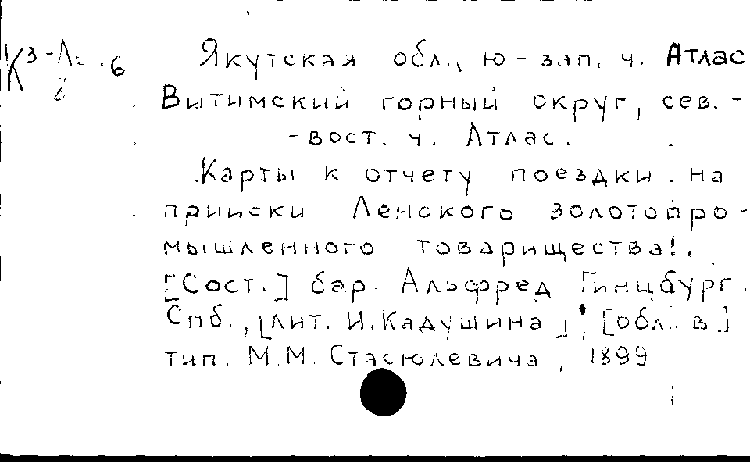 К3-Л. 6
8
Якутская обл., ю-зап. ч. Атлас
Витимский горный округ, сев.-
-вост. ч. Атлас.
Карты к отчету поездки на
прииски Ленского золотопро-
мышленного товарищества!.
[Сост.] бар. Альфред Гинцбург.
Спб., [лит. И. Кадушина], [обл. в.]
тип. М.М. Стасюлевича, 1899